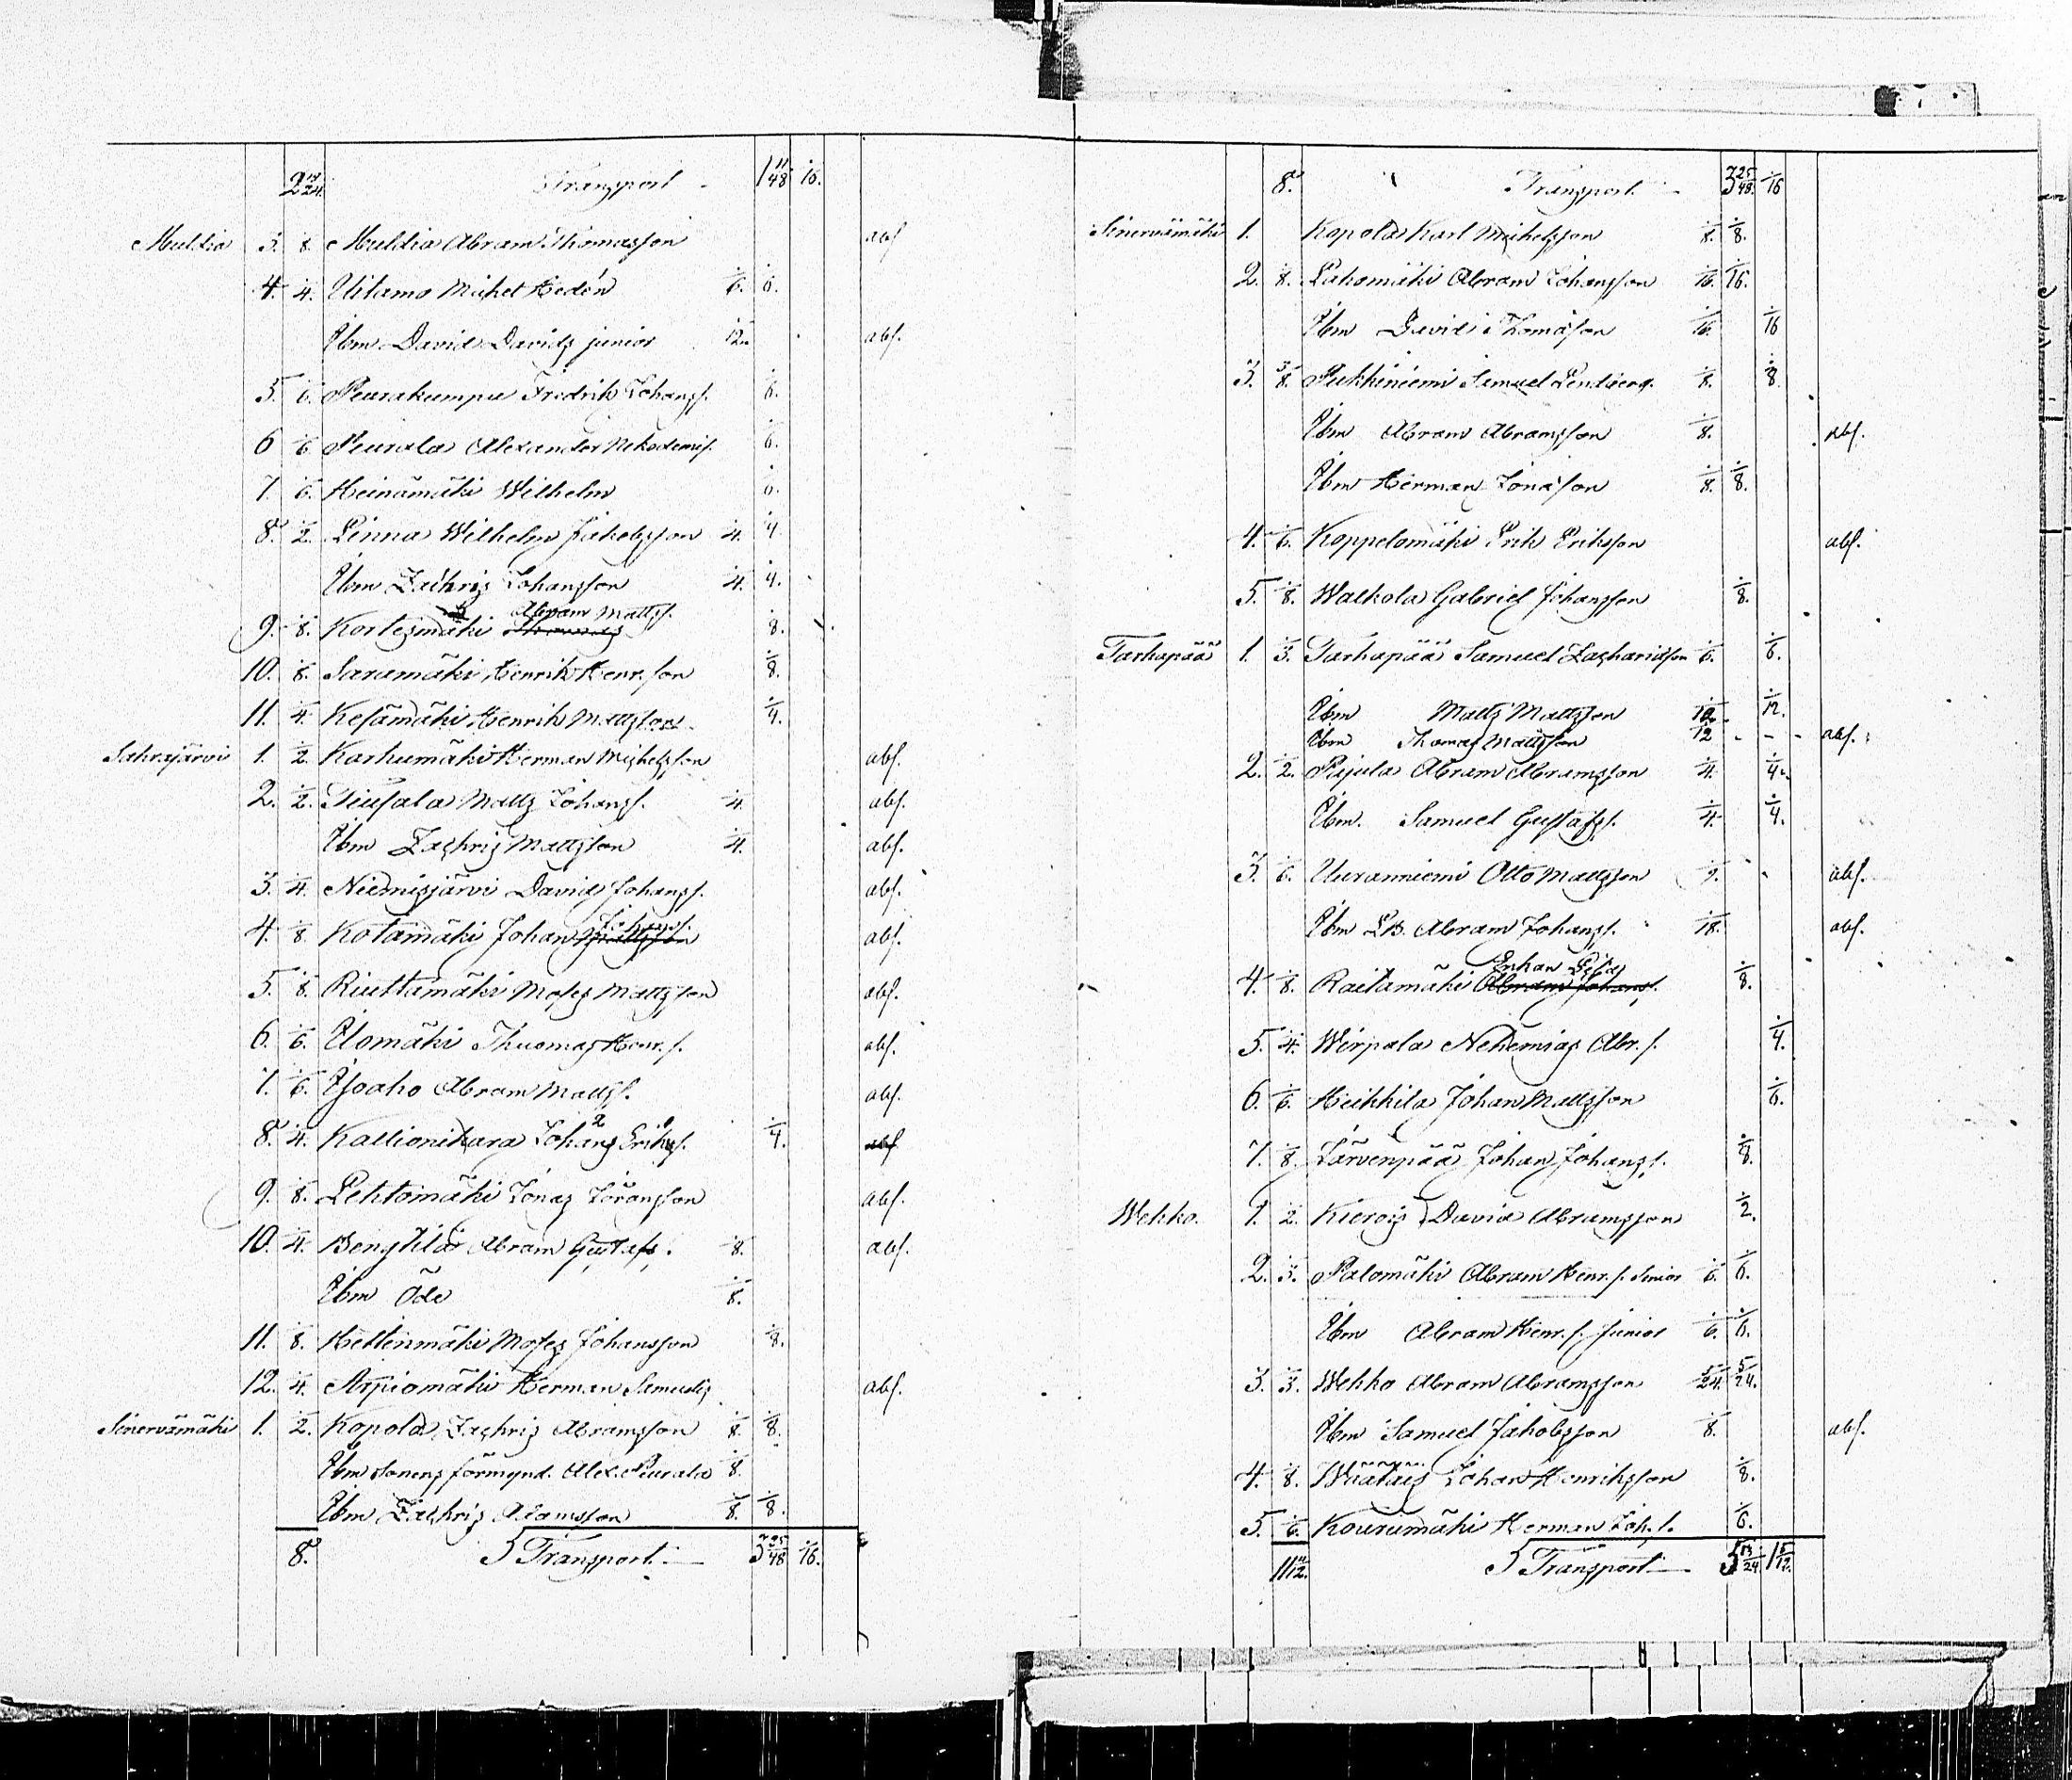 2 19/24. Transport 1 11/48 1/16.
Muldia 3. 1/8. Muldia Abram Thomasson abs
4. 1/4. Uitamo Michel Hedén 1/6. 1/6.
Ibm David Davids junior 1/12. abs.
5. 1/6. Peurakumpu Fredrik Johans s. 1/6.
6 1/6. Peurala Alexander Nikodemis. 1/6.
7. 1/6. Heinämäki Wilhelm 1/6.
8. 1/2. Linna Wilhelm Jakobsson 1/4. 1/4
Ibm Zachris Johansson 1/4. 1/4.
Abram Matts s.
9. 1/8. Kortesmäki 1/8.
10. 1/8. Saramäki Henrik Henr. son 1/8.
11. 1/4. Kesämäki Henrik Mattsson 1/4.
Sahrajärvi 1. 1/2. Karhumäki Herman Michelsson abs.
2. 1/2. Tiusala Matts Johans s. 1/4. abs.
Ibm Zachris Mattsson 1/4. abs.
3. 1/4. Niemisjärvi David Johans s. abs.
4. 1/8. Kotamäki Johan Mattsson abs.
5. 1/8. Riuttamäki Moses Mattsson abs.
6. 1/6. Ulomäki Thuomas Henr. s. abs.
7. 1/6. Isoaho Abram Matts s. abs.
8. 1/4. Kallionikara Johans Eriks s. 1/4. abs
9. 1/8. Lehtomäki Jonas Göransson abs.
10. 1/4. Bengtilä Abram Gustafs. 1/8. abs.
Ibm Öde 1/8.
11. 1/8. Hettenmäki Moses Johansson 1/8.
12. 1/4. Arpiomäki Herman Samuels abs.
Sinervämäki 1. 1/2. Kopola Zachris Abramsson 1/8. 1/8.
Ibm Sonens förmynd. Alex. Peurala 1/8.
Ibm Zachris Adamsson 1/8. 1/8.
8. Transport 3 25/48 1/16.
8. Transport 3 25/48. 1/16
Sinervämäki 1. Kopola Karl Michelsson 1/8. 1/8.
2. 1/8. Lahomäki Abram Johansson 1/16. 1/16.
Ibm David Thomasson 1/16. 1/16
3. 3/8. Pukkiniemi Samuel Lindberg. 1/8. 1/8.
Ibm Abram Abramsson 1/8. abs.
Ibm Herman Jonasson 1/8. 1/8.
4. 1/6. Koppelomäki Erik Eriksson abs.
5. 1/8. Walkola Gabriel Johansson 1/8.
Tarhapää 1. 1/3. Tarhapää Samuel Zachariasson 1/6. 1/6.
Ibm Matts Mattsson 1/12. 1/12.
Ibm Thomas Mattsson 1/12 - - - abs.
2. 1/2. Pajula Abram Abramsson 1/4. 1/4.
Ibm. Samuel Gustafs s. 1/4. 1/4.
3. 1/6. Uuranniemi Otto Mattsson 1/9. abs.
Ibm LB. Abram Johans s. 1/18. abs.
4. 1/8. Raitamäki Abram Johans s. 1/8.
5. 1/4. Wirpala Nehemias Abr. s. 1/4.
6. 1/6. Heikkila Johan Mattsson 1/6.
7. 1/8. Järvenpää Johan Johans s. 1/8.
Wehko. 1. 1/2. Kierois David Abramsson 1/2.
2. 1/3. Palomäki Abram Henr. s. Senior 1/6. 1/6.
Ibm Abram Henr. s. junior 1/6. 1/6.
3. 1/3. Wehko Abram Abramsson 5/24. 5/24.
Ibm Samuel Jakobsson 1/8. abs.
4. 1/8. Johan Henriksson 1/8.
5. 1/6. Kourumäki Herman Joh. s. 1/6.
11 11/12. Transport 5 13/24 1 5/12.